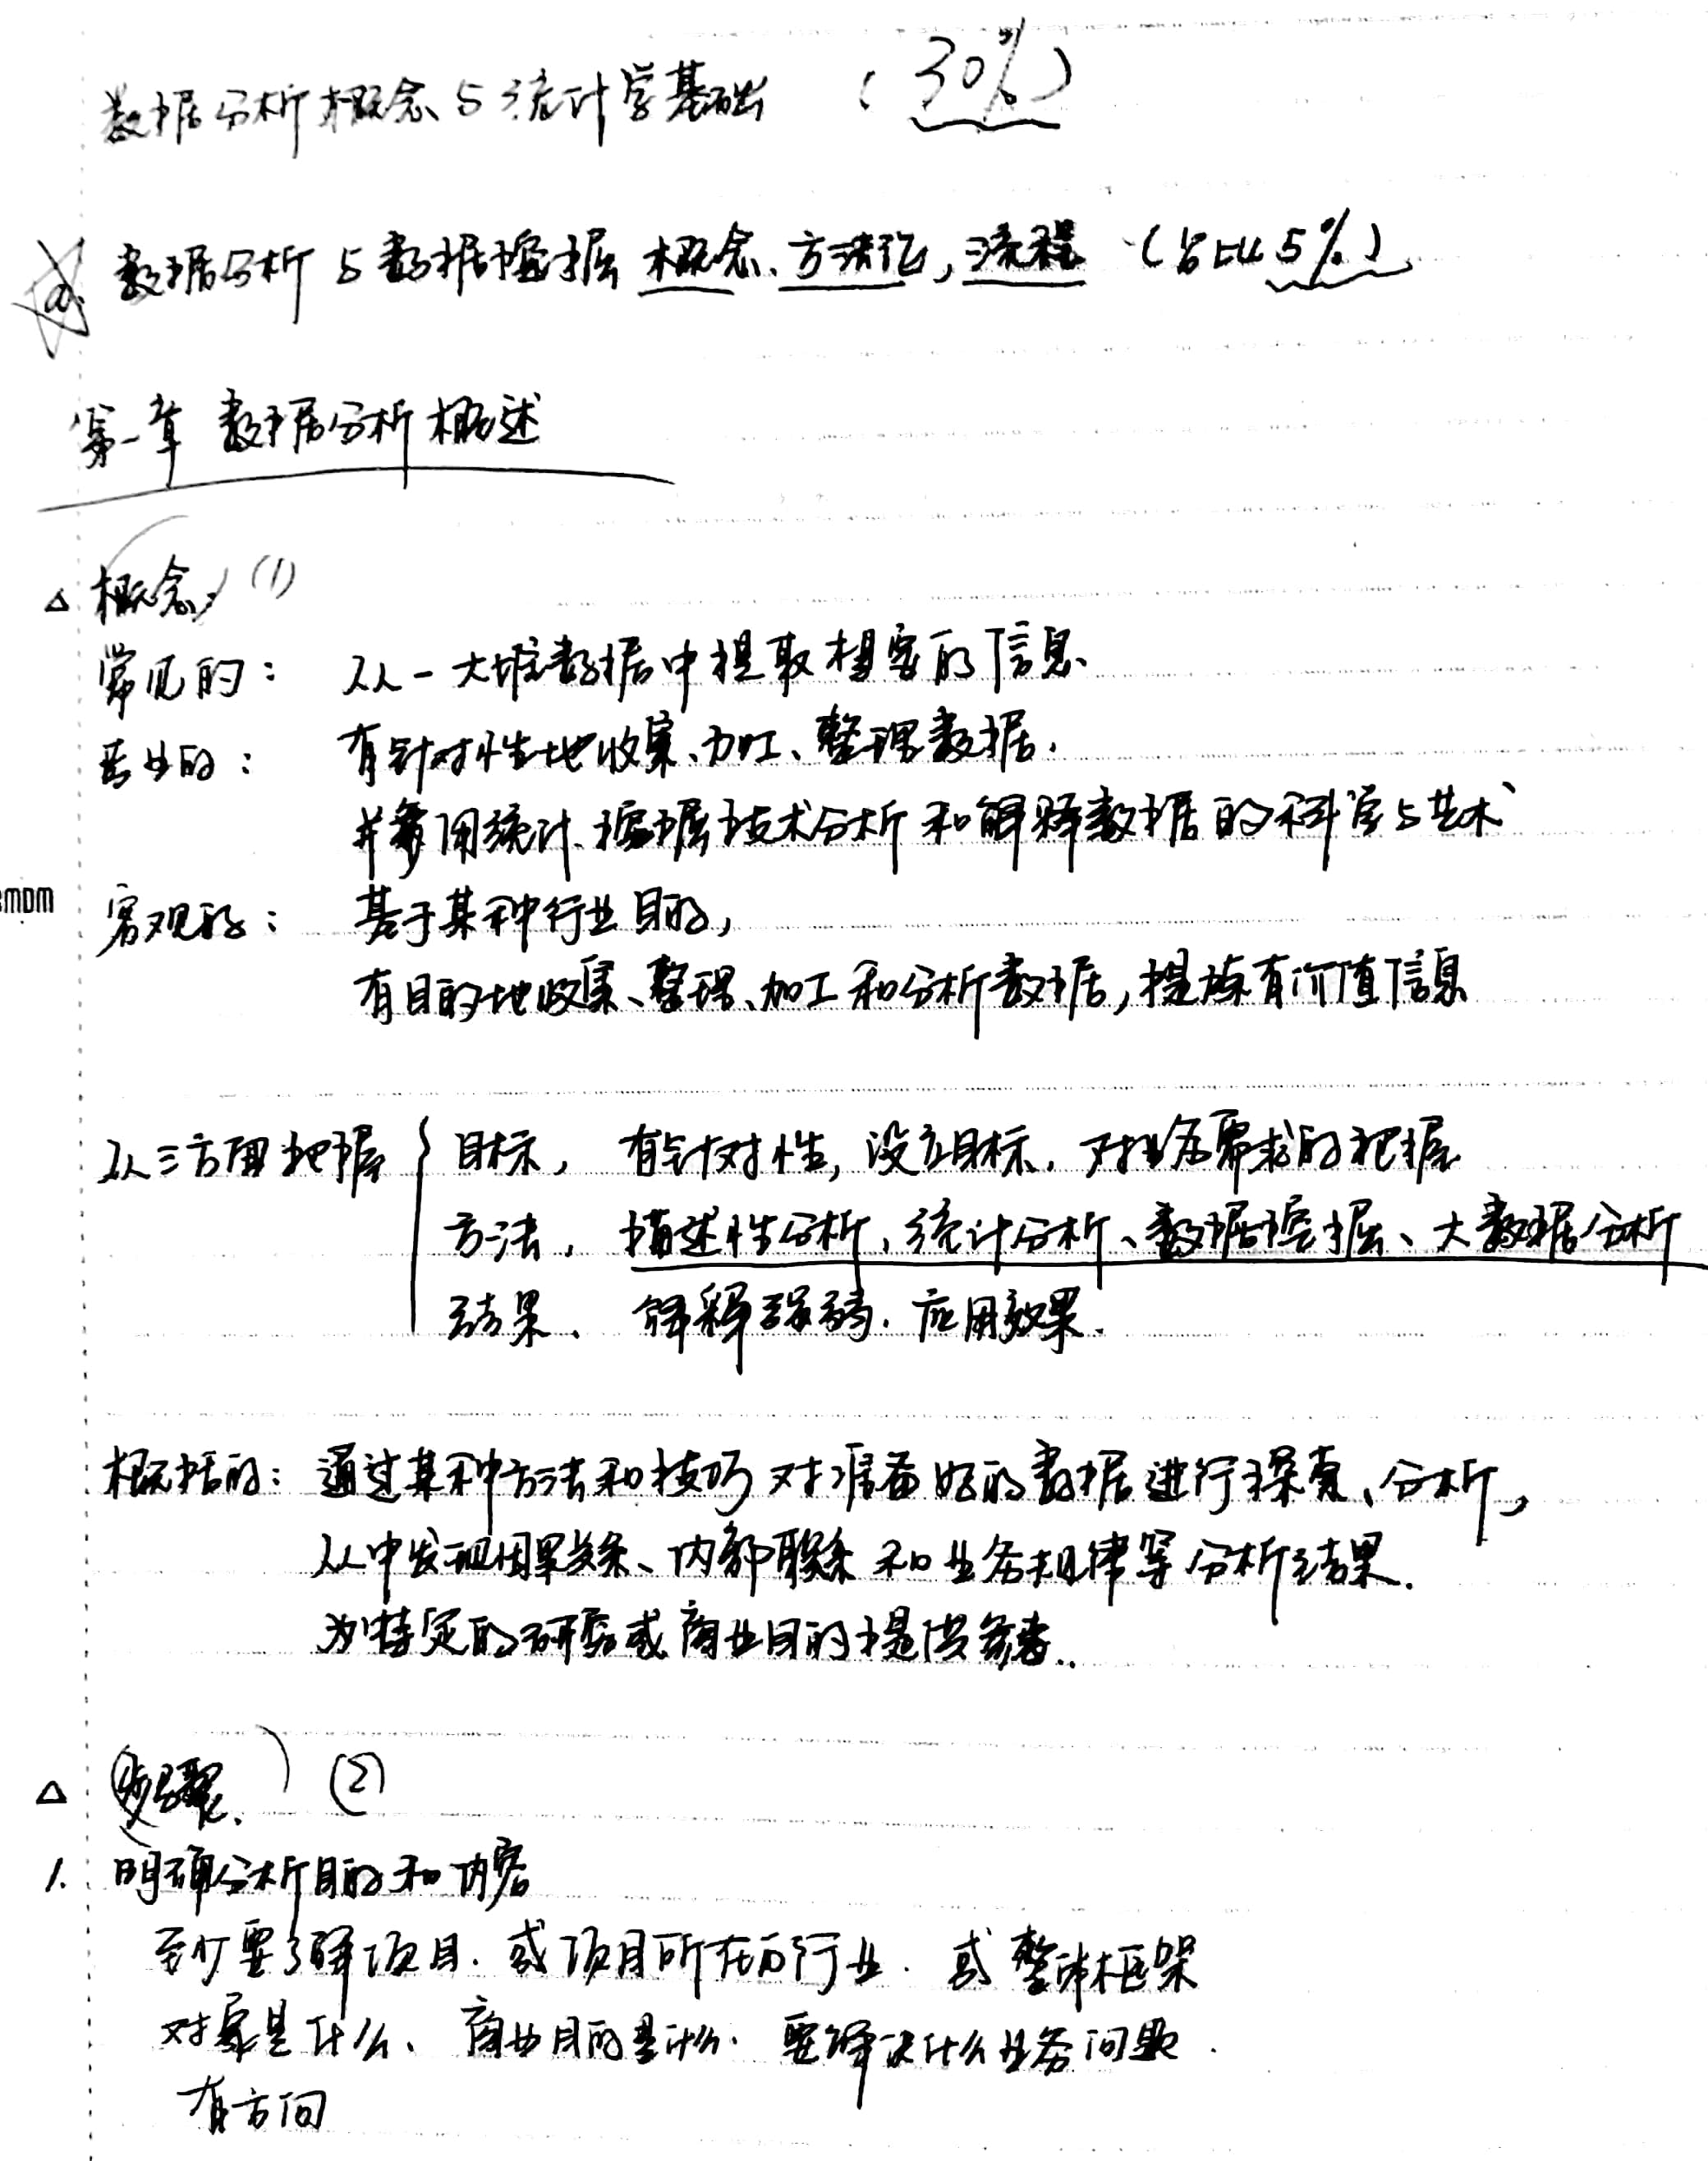 数据分析概念与统计学基础 (30%)
a. 数据分析与数据挖掘概念、方法论,流程 (占比5%)
第一章 数据分析概述
△ 概念 (1)
常见的: 从一大堆数据中提取想要的信息.
专业的: 有针对性地收集、加工、整理数据.
并采用统计、挖掘技术分析和解释数据的科学与艺术
mDm
客观的: 基于某种行业目的,
有目的地收集、整理、加工和分析数据,提炼有价值信息
从三方面把握 { 目标, 有针对性, 设立目标. 对业务需求的把握
方法, 描述性分析、统计分析、数据挖掘、大数据分析
结果、 解释强弱. 应用效果.
概括的: 通过某种方法和技巧对准备好的数据进行探索、分析,
从中发现因果关系、内部联系和业务规律等分析结果.
为特定的研究或商业目的提供参考..
△ 步骤. (2)
1. 明确分析目的和内容
至少要了解项目. 或项目所在的行业. 或整体框架
对象是什么、商业目的是什么. 要解决什么业务问题.
有方向